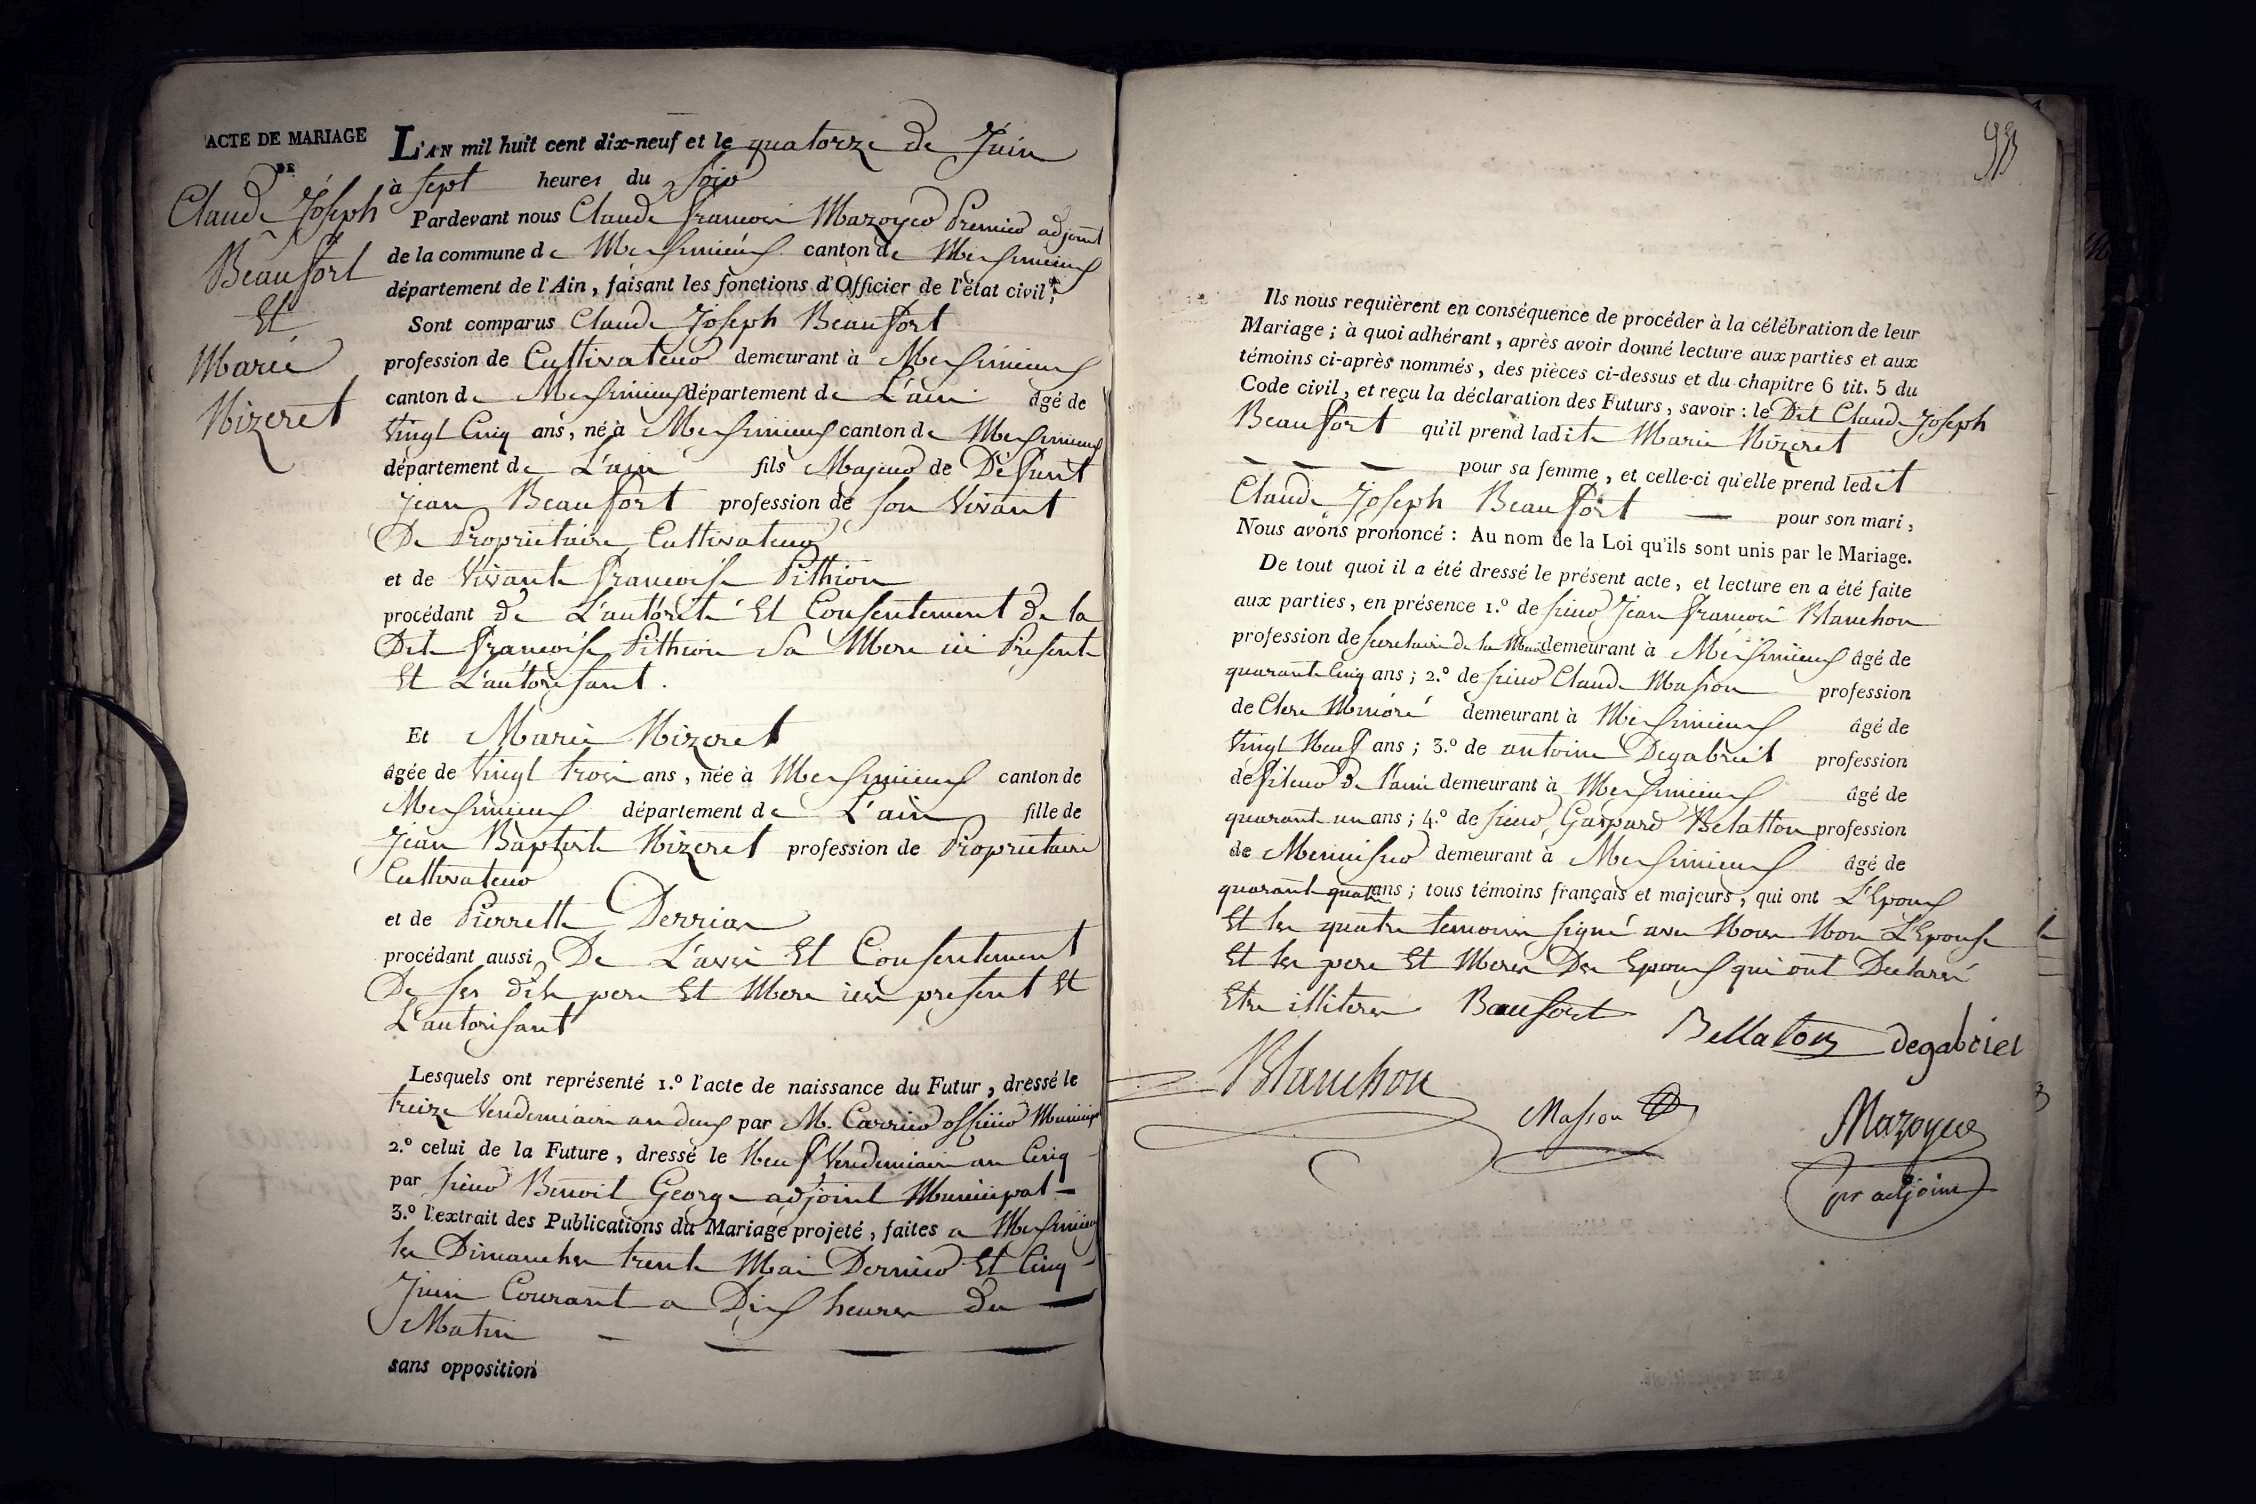 ACTE DE MARIAGE
DE
Claude Joseph
Beaufort
Et
Marie
Nizeret
L'AN mil huit cent dix-neuf et le quatorze de Juin
à sept heures du soir
Pardevant nous Claude françois Mazoyer Premier adjoint
de la commune de Meximieux canton de Meximieux
département de l'Ain, faisant les fonctions d'Officier de l'état civil;
Sont comparus Claude Joseph Beaufort
profession de Cultivateur demeurant à Meximieux
canton de Meximieux département de L'ain âgé de
Vingt Cinq ans, né à Meximieux canton de Meximieux
département de L'ain fils Majeur de Défunt
Jean Beaufort profession de son Vivant
De Propriétaire Cultivateur
et de Vivante françoise Pithion
procédant de L'autorité Et Consentement de la
Dite françoise Pithion Sa Mere ici Presente
Et L'autorisant.
Et Marie Nizeret
âgée de Vingt trois ans, née à Meximieux canton de
Meximieux département de L'ain fille de
Jean Baptiste Nizeret profession de Propriétaire
Cultivateur
et de Pierrette Derrias
procédant aussi De L'avis Et Consentement
De ses dits pere Et Mere ici present Et
L'autorisant
Lesquels ont représenté 1.º l'acte de naissance du Futur, dressé le
treize Vendemiaire an deux par M. Carrier officier Municipal
2.º celui de la Future, dressé le Neuf Vendemiaire an Cinq
par sieur Benoit George adjoint Municipal
3.º l'extrait des Publications du Mariage projeté, faites a Meximieux
les Dimanches trente Mai Dernier Et Cinq
Juin Courant a Dix heures du
Matin
sans opposition
Ils nous requièrent en conséquence de procéder à la célébration de leur
Mariage; à quoi adhérant, après avoir donné lecture aux parties et aux
témoins ci-après nommés, des pièces ci-dessus et du chapitre 6 tit. 5 du
Code civil, et reçu la déclaration des Futurs, savoir: le Dit Claude Joseph
Beaufort qu'il prend ladite Marie Nizeret
pour sa femme, et celle-ci qu'elle prend ledit
Claude Joseph Beaufort pour son mari,
Nous avons prononcé: Au nom de la Loi qu'ils sont unis par le Mariage.
De tout quoi il a été dressé le présent acte, et lecture en a été faite
aux parties, en présence 1.º de sieur Jean françois Blanchon
profession de secretaire de la Mairie demeurant à Meximieux âgé de
quarante Cinq ans; 2.º de sieur Claude Masson profession
de Clerc Minoré demeurant à Meximieux âgé de
Vingt Neuf ans; 3.º de antoine Degabriel profession
de fileur de laine demeurant à Meximieux âgé de
quarante un ans; 4.º de sieur Gaspard Belatton profession
de Menuisier demeurant à Meximieux âgé de
quarante quatre ans; tous témoins français et majeurs, qui ont L'Epoux
Et les quatre temoins signé avec Nous Non L'Epouse
Et les pere Et Meres Des Epoux qui ont Declaré
Etre illiterés Baufort
Bellaton degabriel
Blanchon
Masson
Mazoyer
pr adjoint